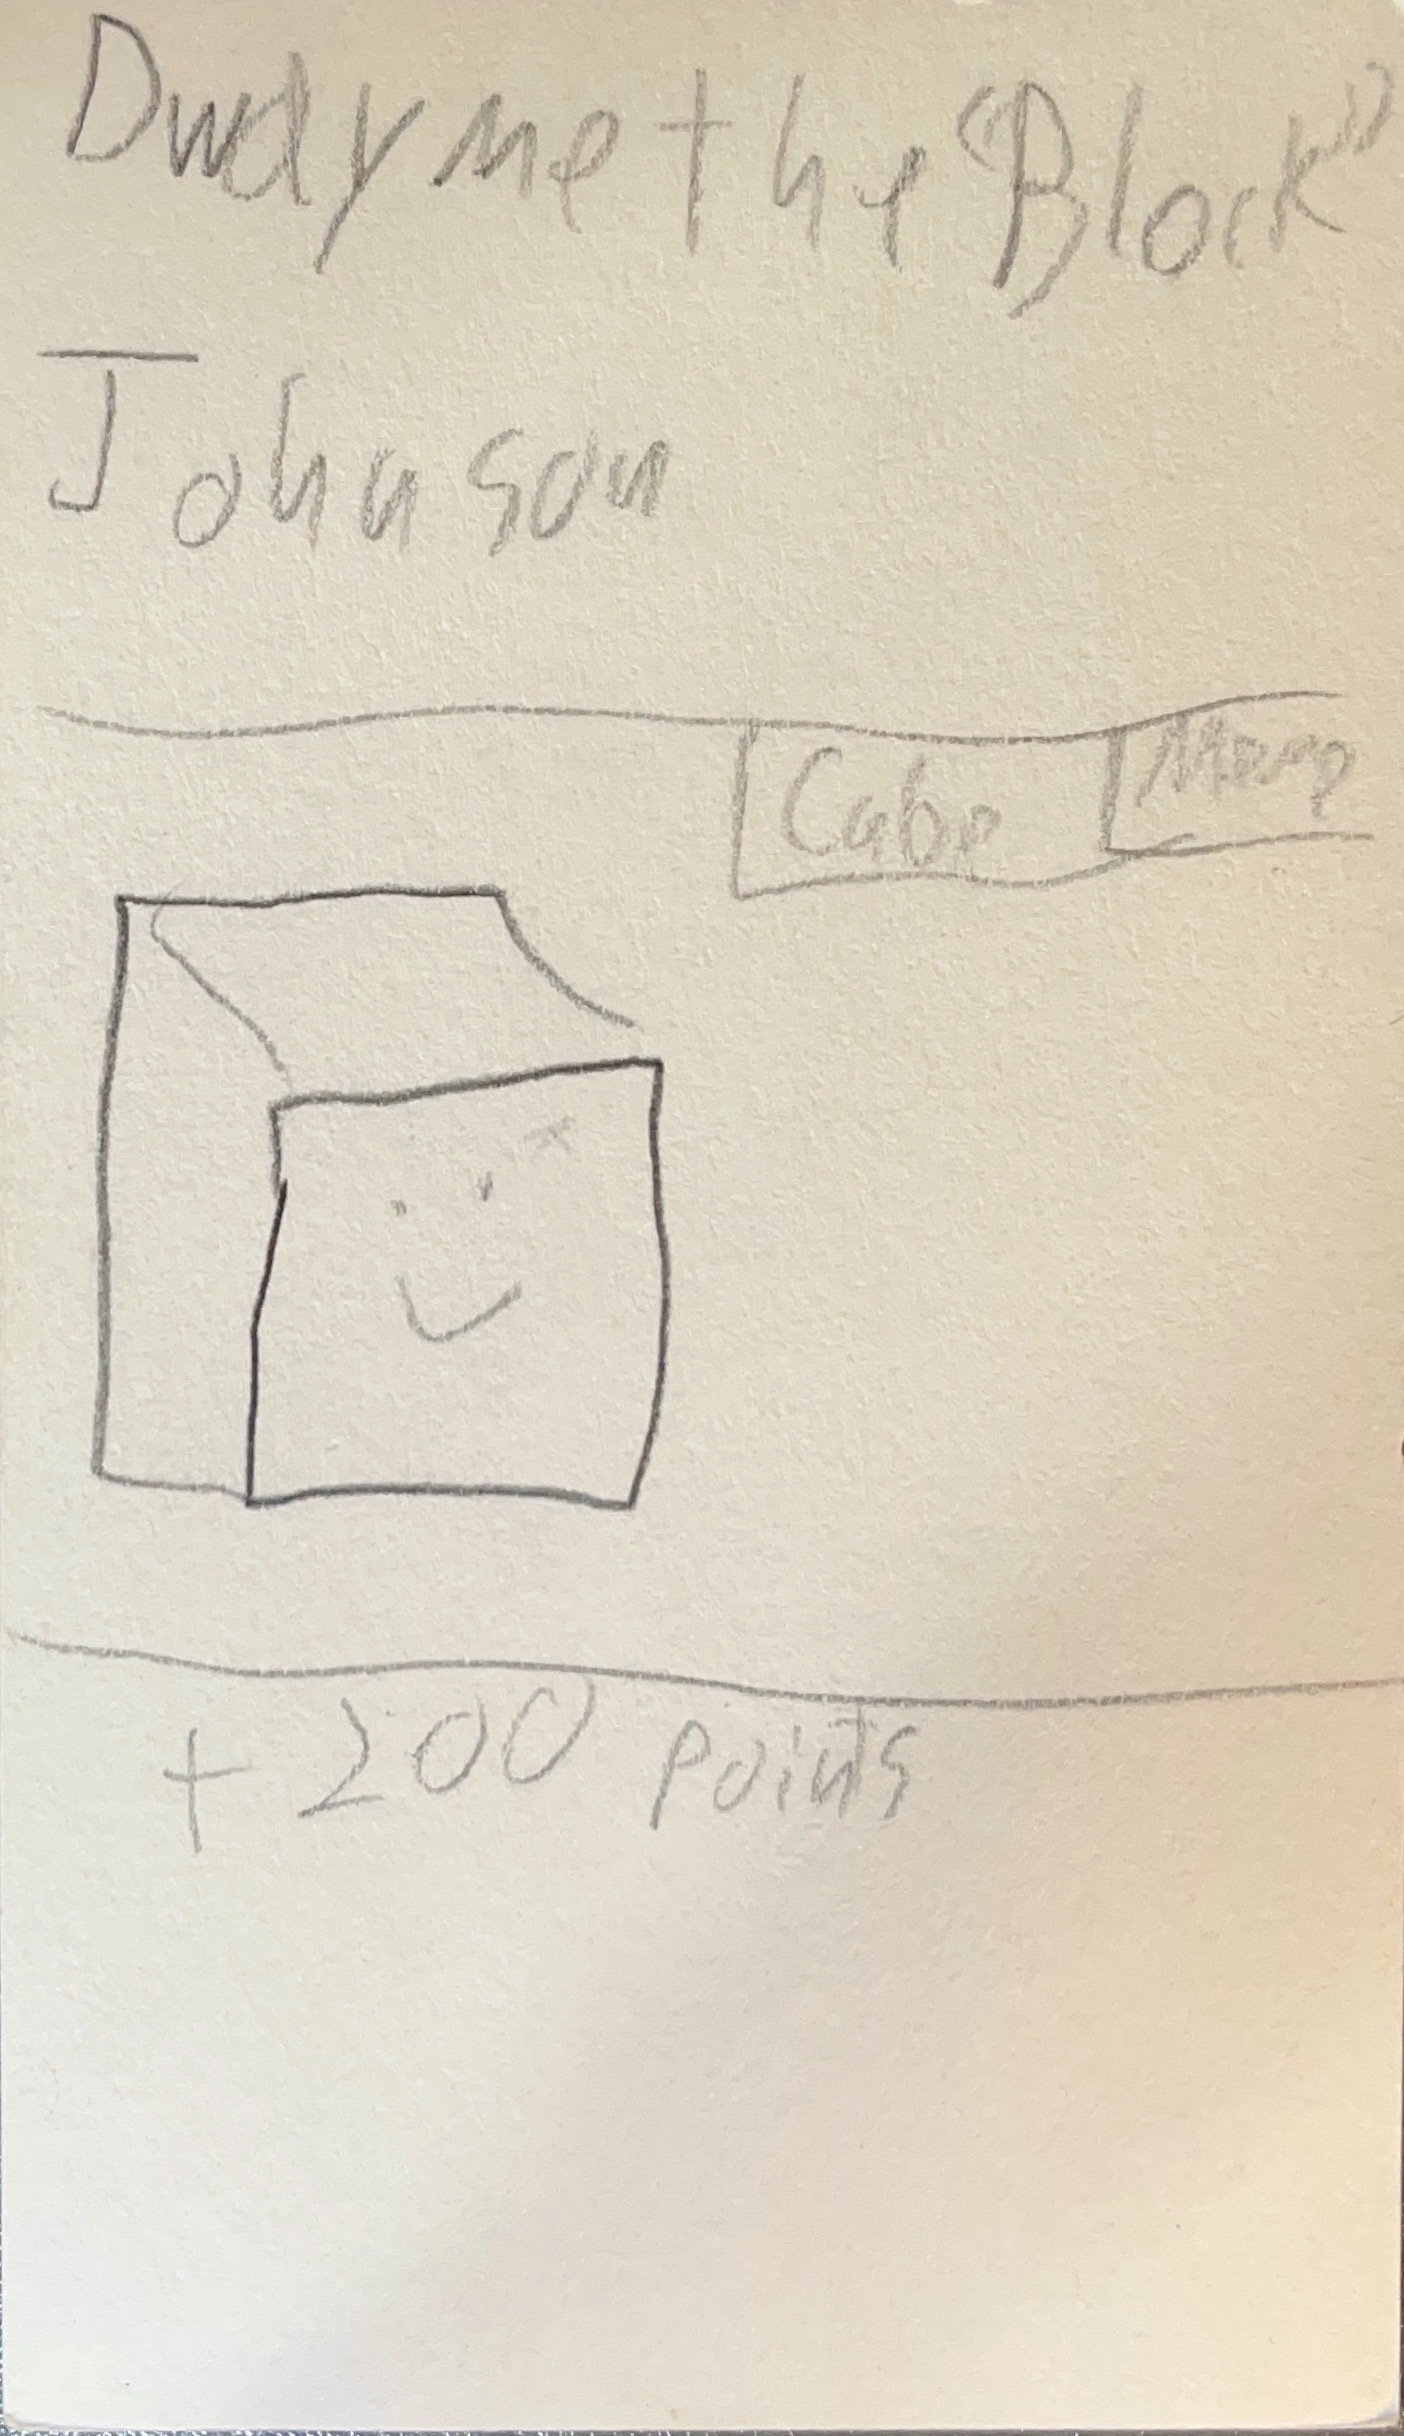 Dwayne the "Block"
Johnson
Cube Meme
+ 200 points